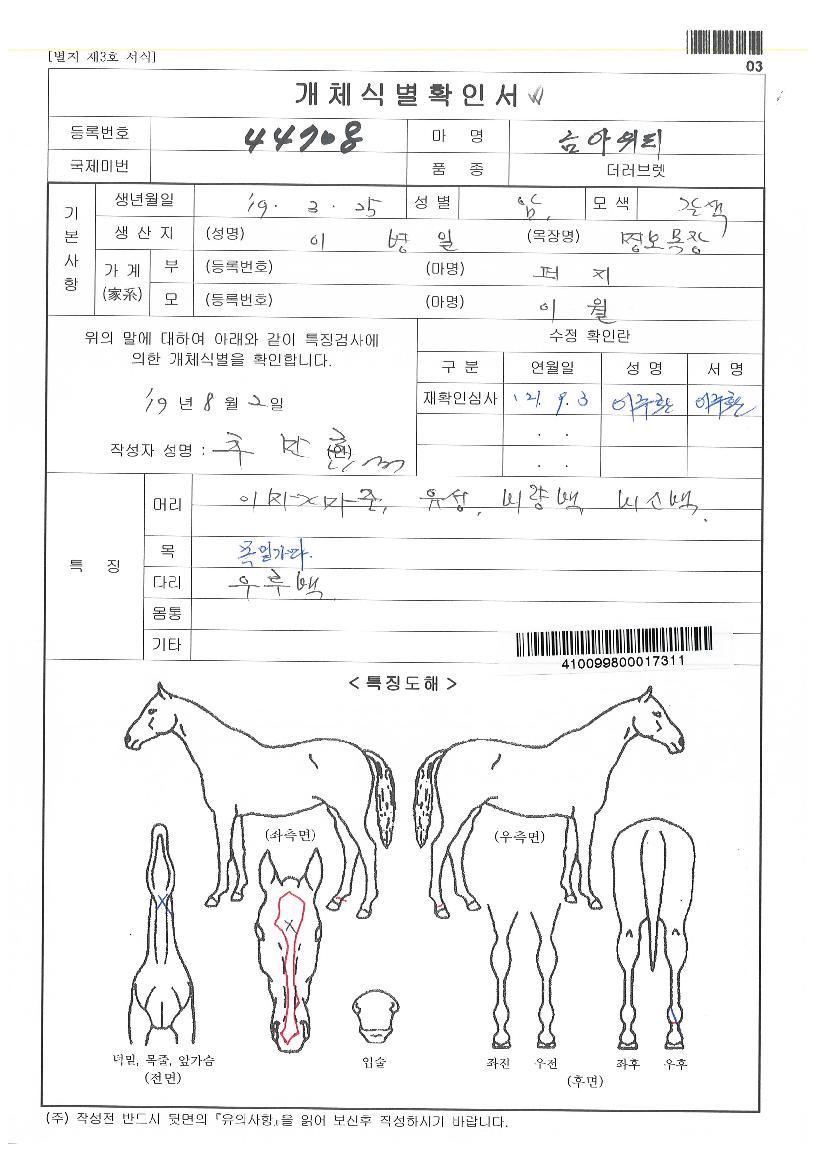 [별지 제3호 서식]
03
개체식별확인서
등록번호 44708 마 명 금아위티
국제미번 품 종 더러브렛
기본사항
생년월일 '19. 3. 25 성 별 암 모 색 갈색
생 산 지 (성명) 이 병 일 (목장명) 정보목장
가 계 (家系)
부 (등록번호) (마명) 퍼 지
모 (등록번호) (마명) 이 월
위의 말에 대하여 아래와 같이 특징검사에
의한 개체식별을 확인합니다.
'19 년 8 월 2 일
작성자 성명 : (인)
수정 확인란
구 분 연월일 성 명 서 명
재확인심사 '21. 9. 3
. .
. .
특 징
머리 유성, 비량백, 비소백.
목
다리 우후백
몸통
기타
410099800017311
< 특징도해 >
(좌측면) (우측면)
턱밑, 목줄, 앞가슴
(전면)
입술
좌전 우전 좌후 우후
(후면)
(주) 작성전 반드시 뒷면의 『유의사항』을 읽어 보신후 작성하시기 바랍니다.